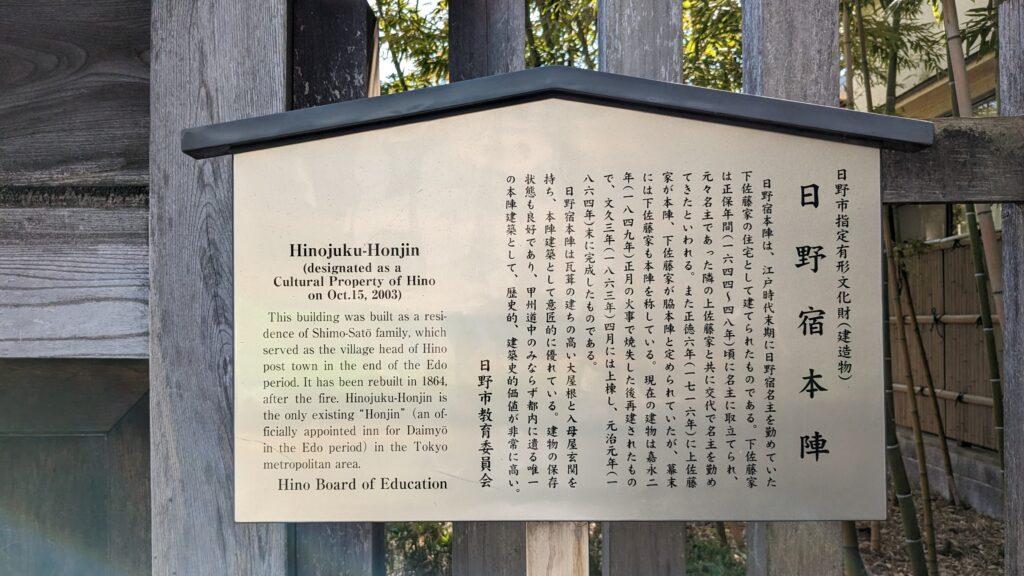 日野市指定有形文化財(建造物)
日野宿本陣
日野宿本陣は、江戸時代末期に日野宿名主を勤めていた
下佐藤家の住宅として建てられたものである。下佐藤家
は正保年間(一六四四〜四八年)頃に名主に取立てられ、
元々名主であった隣の上佐藤家と共に交代で名主を勤め
てきたといわれる。また正徳六年(一七一六年)に上佐藤
家が本陣、下佐藤家が脇本陣と定められていたが、幕末
には下佐藤家も本陣を称している。現在の建物は嘉永二
年(一八四九年)正月の火事で焼失した後再建されたもの
で、文久三年(一八六三年)四月には上棟し、元治元年(一
八六四年)末に完成したものである。
日野宿本陣は瓦葺の建ちの高い大屋根と入母屋玄関を
持ち、本陣建築として意匠的に優れている。建物の保存
状態も良好であり、甲州道中のみならず都内に遺る唯一
の本陣建築として、歴史的、建築史的価値が非常に高い。
日野市教育委員会
Hinojuku-Honjin
(designated as a
Cultural Property of Hino
on Oct.15, 2003)
This building was built as a resi-
dence of Shimo-Satō family, which
served as the village head of Hino
post town in the end of the Edo
period. It has been rebuilt in 1864,
after the fire. Hinojuku-Honjin is
the only existing "Honjin" (an of-
ficially appointed inn for Daimyō
in the Edo period) in the Tokyo
metropolitan area.
Hino Board of Education